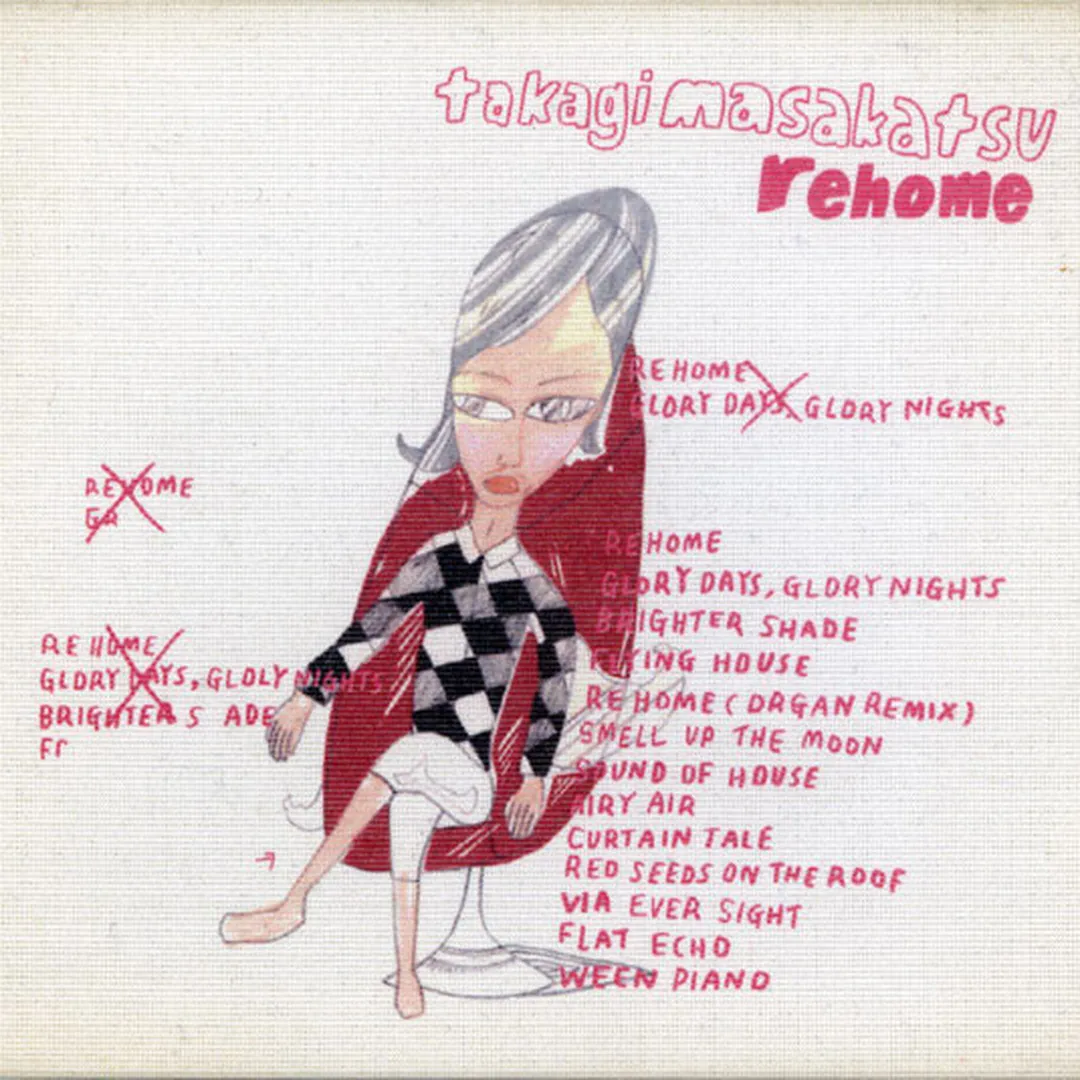 takagi masakatsu
rehome
REHOME
GLORY DAYS GLORY NIGHTS
REHOME
GR
REHOME
GLORY DAYS, GLORY NIGHTS
BRIGHTER SHADE
FLYING HOUSE
REHOME (ORGAN REMIX)
SMELL UP THE MOON
SOUND OF HOUSE
AIRY AIR
CURTAIN TALE
RED SEEDS ON THE ROOF
VIA EVER SIGHT
FLAT ECHO
WEEN PIANO
REHOME
GLORY DAYS, GLOLY NIGHTS
BRIGHTER S ADE
Fr